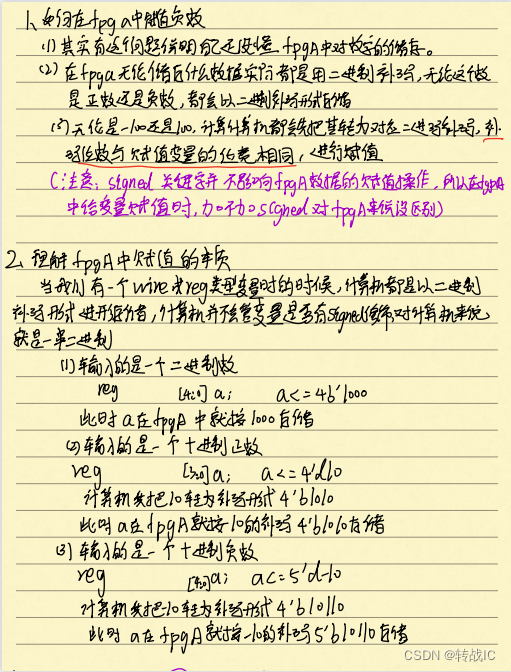 1、如何在fpga中赋值负数
(1) 其实有这个问题说明自己还没懂 fpgA中对数字的储存。
(2) 在fpga无论储存什么数据实际都是用二进制补码,无论这个数
是正数还是负数,都会以二进制补码形式存储
(3) 无论是-100还是100,计算计算机都会先把其转为对应二进制补码,补
码位数与赋值变量的位宽相同,进行赋值
(注意:signed 关键字并不影响fpgA数据的赋值操作,所以在fpgA
中给变量赋值时,加不加signed对fpgA来说没区别)
2、理解fpgA中赋值的本质
当我们有一个wire或reg类型变量时的时候,计算机都是以二进制
补码形式进行存储,计算机并不会管变量是否有signed修饰,对计算机来说
就是一串二进制
(1) 输入的是一个二进制数
reg [4:0] a; a<=4b'1000
此时a在fpgA中就按1000存储
(2) 输入的是一个十进制正数
reg [3:0] a; a<=4'd10
计算机先把10转为补码形式4'b1010
此时a在fpgA就按10的补码4'b1010存储
(3) 输入的是一个十进制负数
reg [4:0] a; a<=5'd-10
计算机先把-10转为补码形式4'b10110
此时a在fpgA就按-10的补码5'b10110存储
CSDN @转战IC